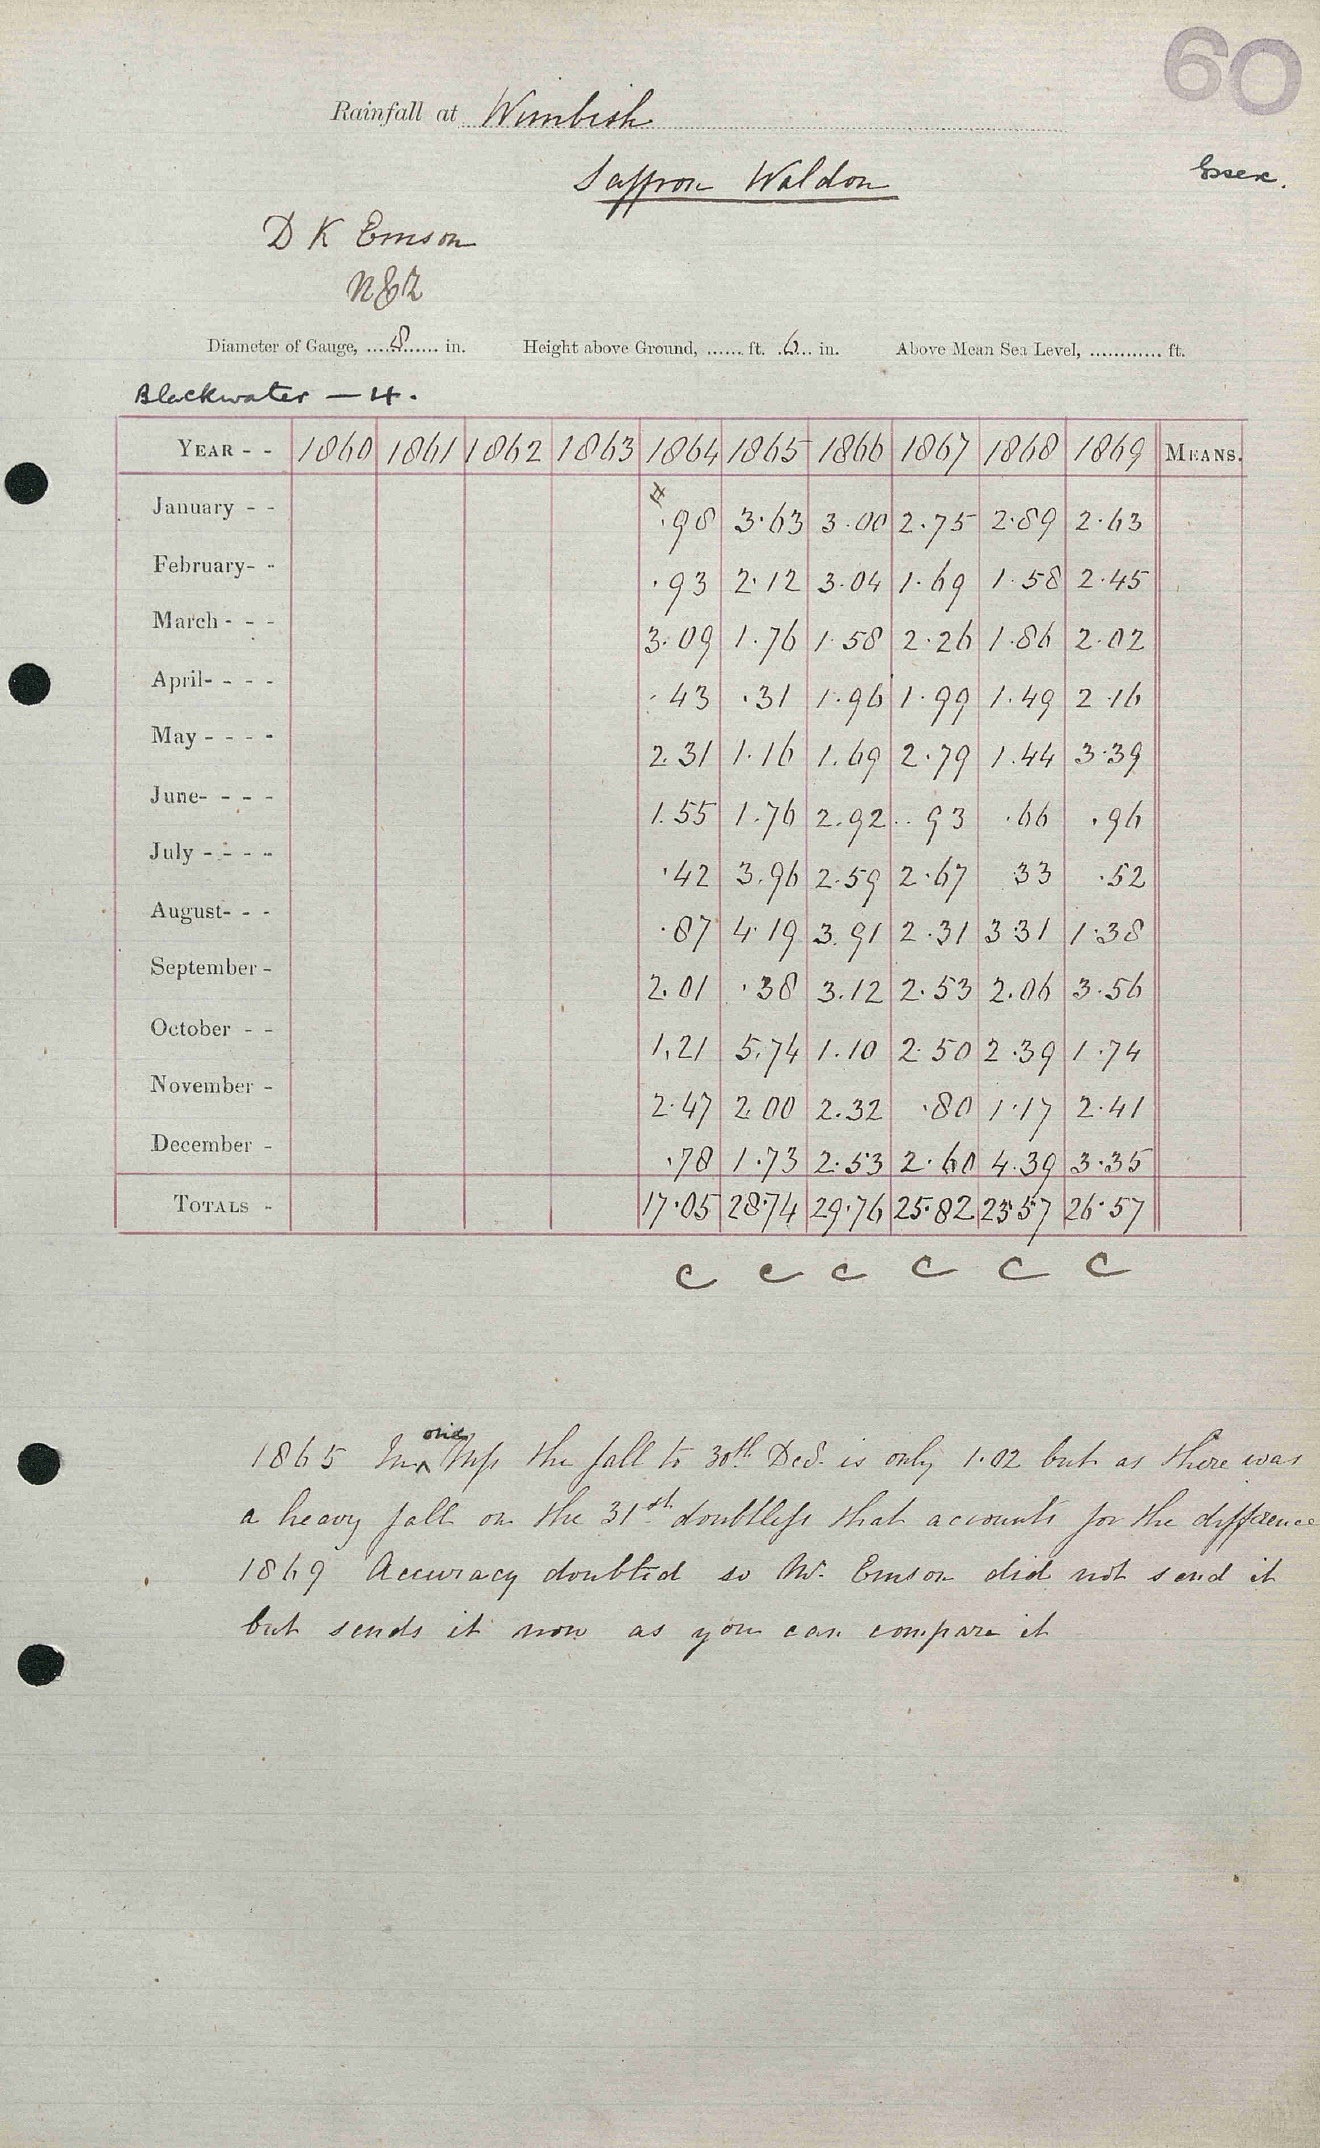 60
Rainfall at Wimbish
Saffron Waldon
Essex.
D K Emson
Diameter of Gauge, ....8.... in. Height above Ground, ...... ft. 6 in. Above Mean Sea Level, ............ ft.
Blackwater — 4.
YEAR - - 1860 1861 1862 1863 1864 1865 1866 1867 1868 1869 MEANS.
January - - .98 3.63 3.00 2.75 2.89 2.63
February- - .93 2.12 3.04 1.69 1.58 2.45
March - - - 3.09 1.76 1.58 2.26 1.86 2.02
April- - - - .43 .31 1.96 1.99 1.49 2.16
May - - - - 2.31 1.16 1.69 2.79 1.44 3.39
June- - - - 1.55 1.76 2.92 .93 .66 .96
July - - - - .42 3.96 2.59 2.67 33 .52
August- - - .87 4.19 3.91 2.31 3.31 1.38
September - 2.01 .38 3.12 2.53 2.06 3.56
October - - 1.21 5.74 1.10 2.50 2.39 1.74
November - 2.47 2.00 2.32 .80 1.17 2.41
December - .78 1.73 2.53 2.60 4.39 3.35
TOTALS - 17.05 28.74 29.76 25.82 23.57 26.57
C C C C C C
1865 In orig Mss the fall to 30th Decr. is only 1.02 but as there was
a heavy fall on the 31st doubtless that accounts for the difference
1869 Accuracy doubted so Mr. Emson did not send it
but sends it now as you can compare it